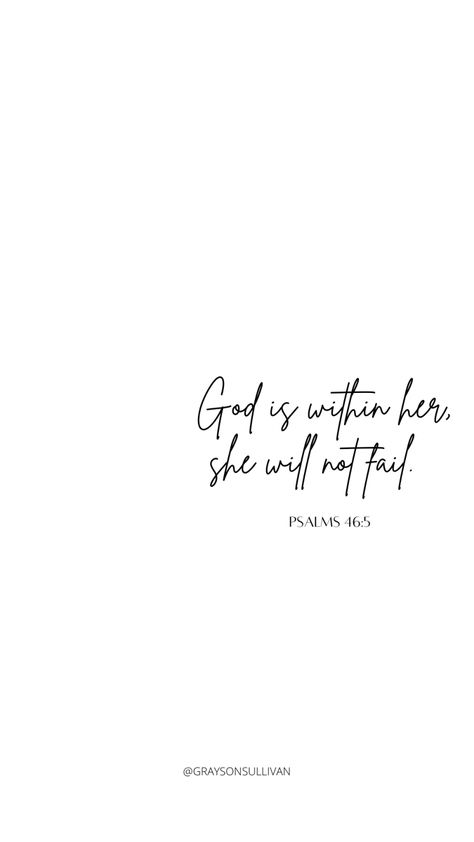 God is within her,
she will not fail.
PSALMS 46:5
@GRAYSONSULLIVAN